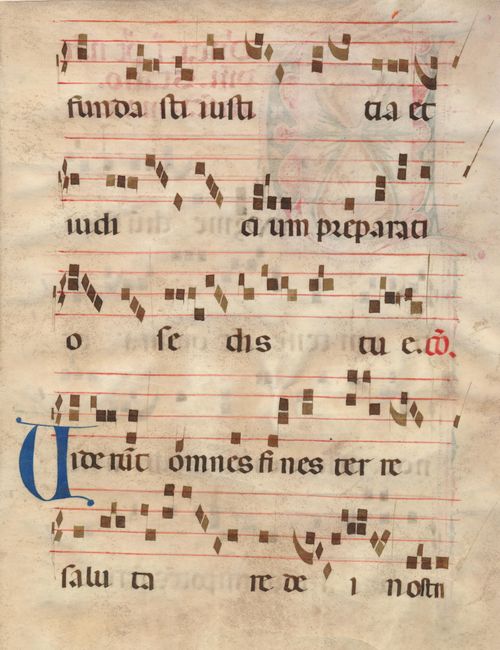 funda sti iusti tia et
iudi ci um preparati
o se dis tu e. cō.
Uiderūt omnes fi nes ter re
salu ta re de i nostri